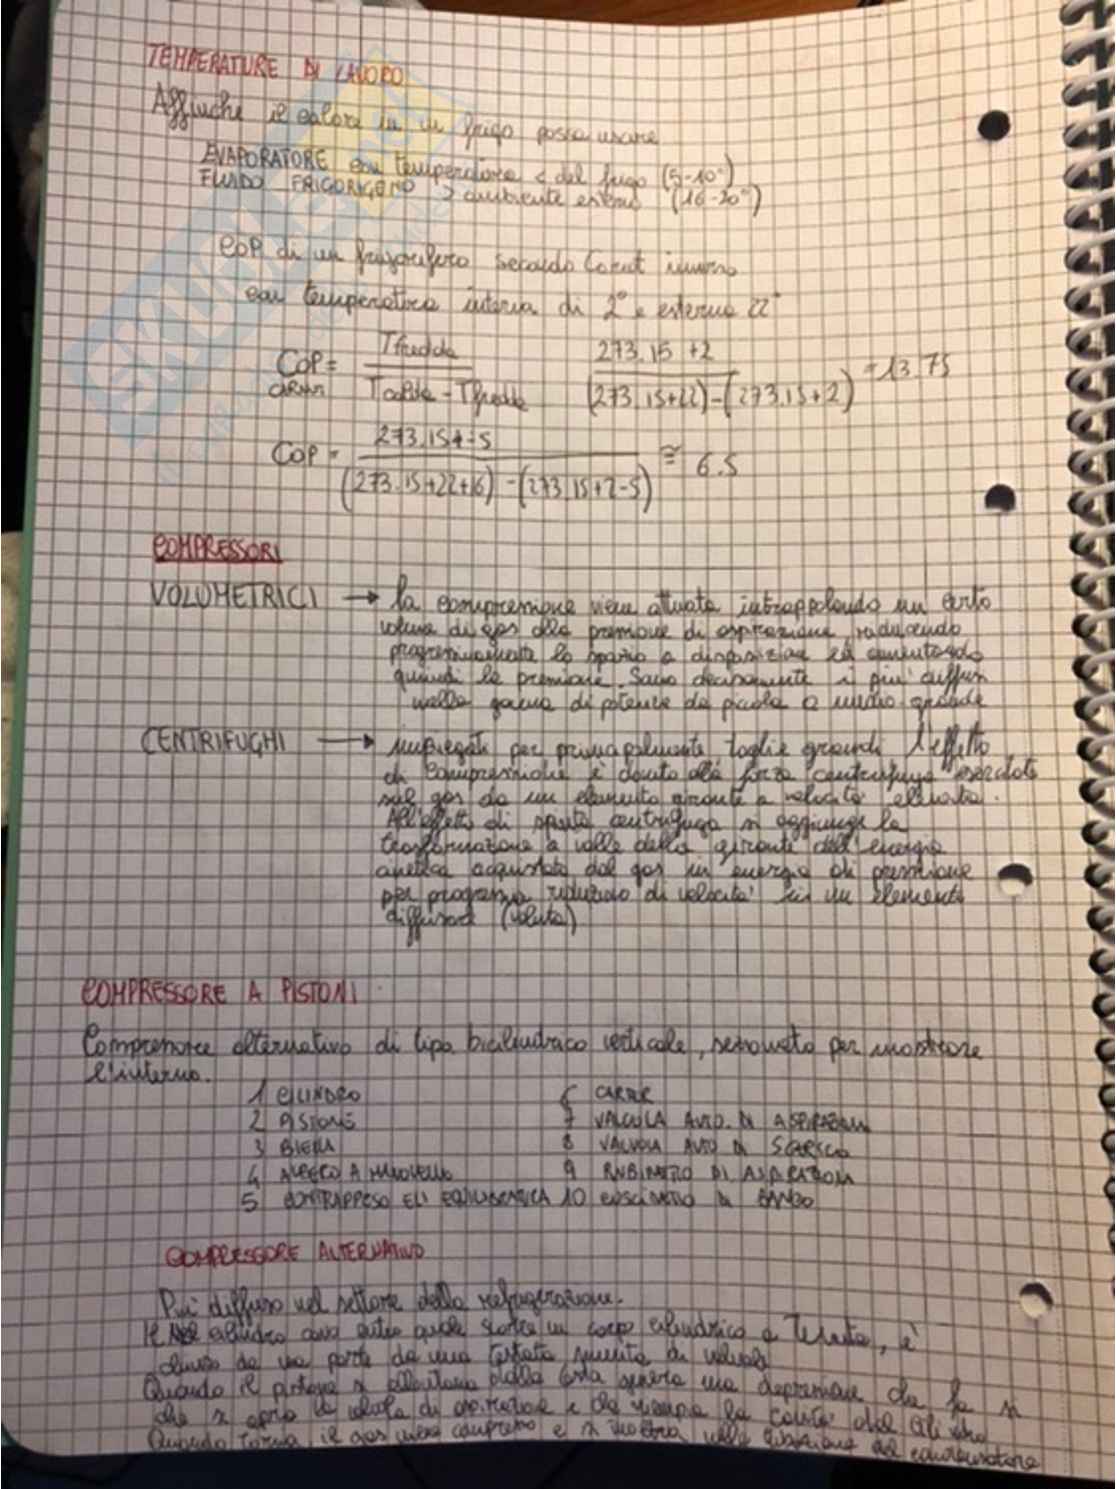 TEMPERATURE DI LAVORO
Affinche il calore in un frigo possa uscire
EVAPORATORE con temperatura < del frigo (5-10°)
FLUIDO FRIGORIGENO > ambiente esterno (16-20°)
COP di un frigorifero secondo Carnot inverso
con temperatura interna di 2° e esterna 22°
COP CARNOT = Tfredda / Tcalda - Tfredda 273.15 +2 / (273.15+22)-(273.15+2) = 13.75
COP = 273.15+-5 / (273.15+22+16) - (273.15+2-5) ≅ 6.5
COMPRESSORI
VOLUMETRICI → la compressione viene attuata intrappolando un certo
volume di gas alla pressione di aspirazione, riducendo
progressivamente lo spazio a disposizione ed aumentando
quindi la pressione. Sono decisamente i piu' diffusi
nella gamma di potenze da piccola a medio grande
CENTRIFUGHI → impiegati per principalmente taglie grandi l'effetto
di compressione è dovuto alla forza centrifuga esercitata
sul gas da un elemento girante a velocità elevata.
All'effetto di spinta centrifuga si aggiunge la
trasformazione a valle della girante dell'energia
cinetica acquistata dal gas in energia di pressione
per progressiva riduzione di velocita' in un elemento
diffusore (voluta)
COMPRESSORE A PISTONI
Compressore alternativo di tipo bicilindrico verticale, sezionato per mostrare
l'interno.
1 CILINDRO
2 PISTONE
3 BIELA
4 ALBERO A MANOVELLO
5 CONTRAPPESO
6 CARTER
7 VALVOLA AUTO. DI ASPIRAZION
8 VALVOLA AUTO DI SCARICO
9 RUBINETTO DI ASPIRAZION
10 CUSCINETTO DI BANCO
COMPRESSORE ALTERNATIVO
Piu' diffuso nel settore della refrigerazione.
Il cilindro entro quale scorre un corpo cilindrico a Tenuta, è
chiuso da una parte da una testata munita di valvole
Quando il pistone si allontana dalla testa genera una depressione che fa si
che si apra la valvola di aspirazione e che riempia la cavità del cilindro
Quando torna il gas viene compresso e si inoltra nella tubazione del condensatore